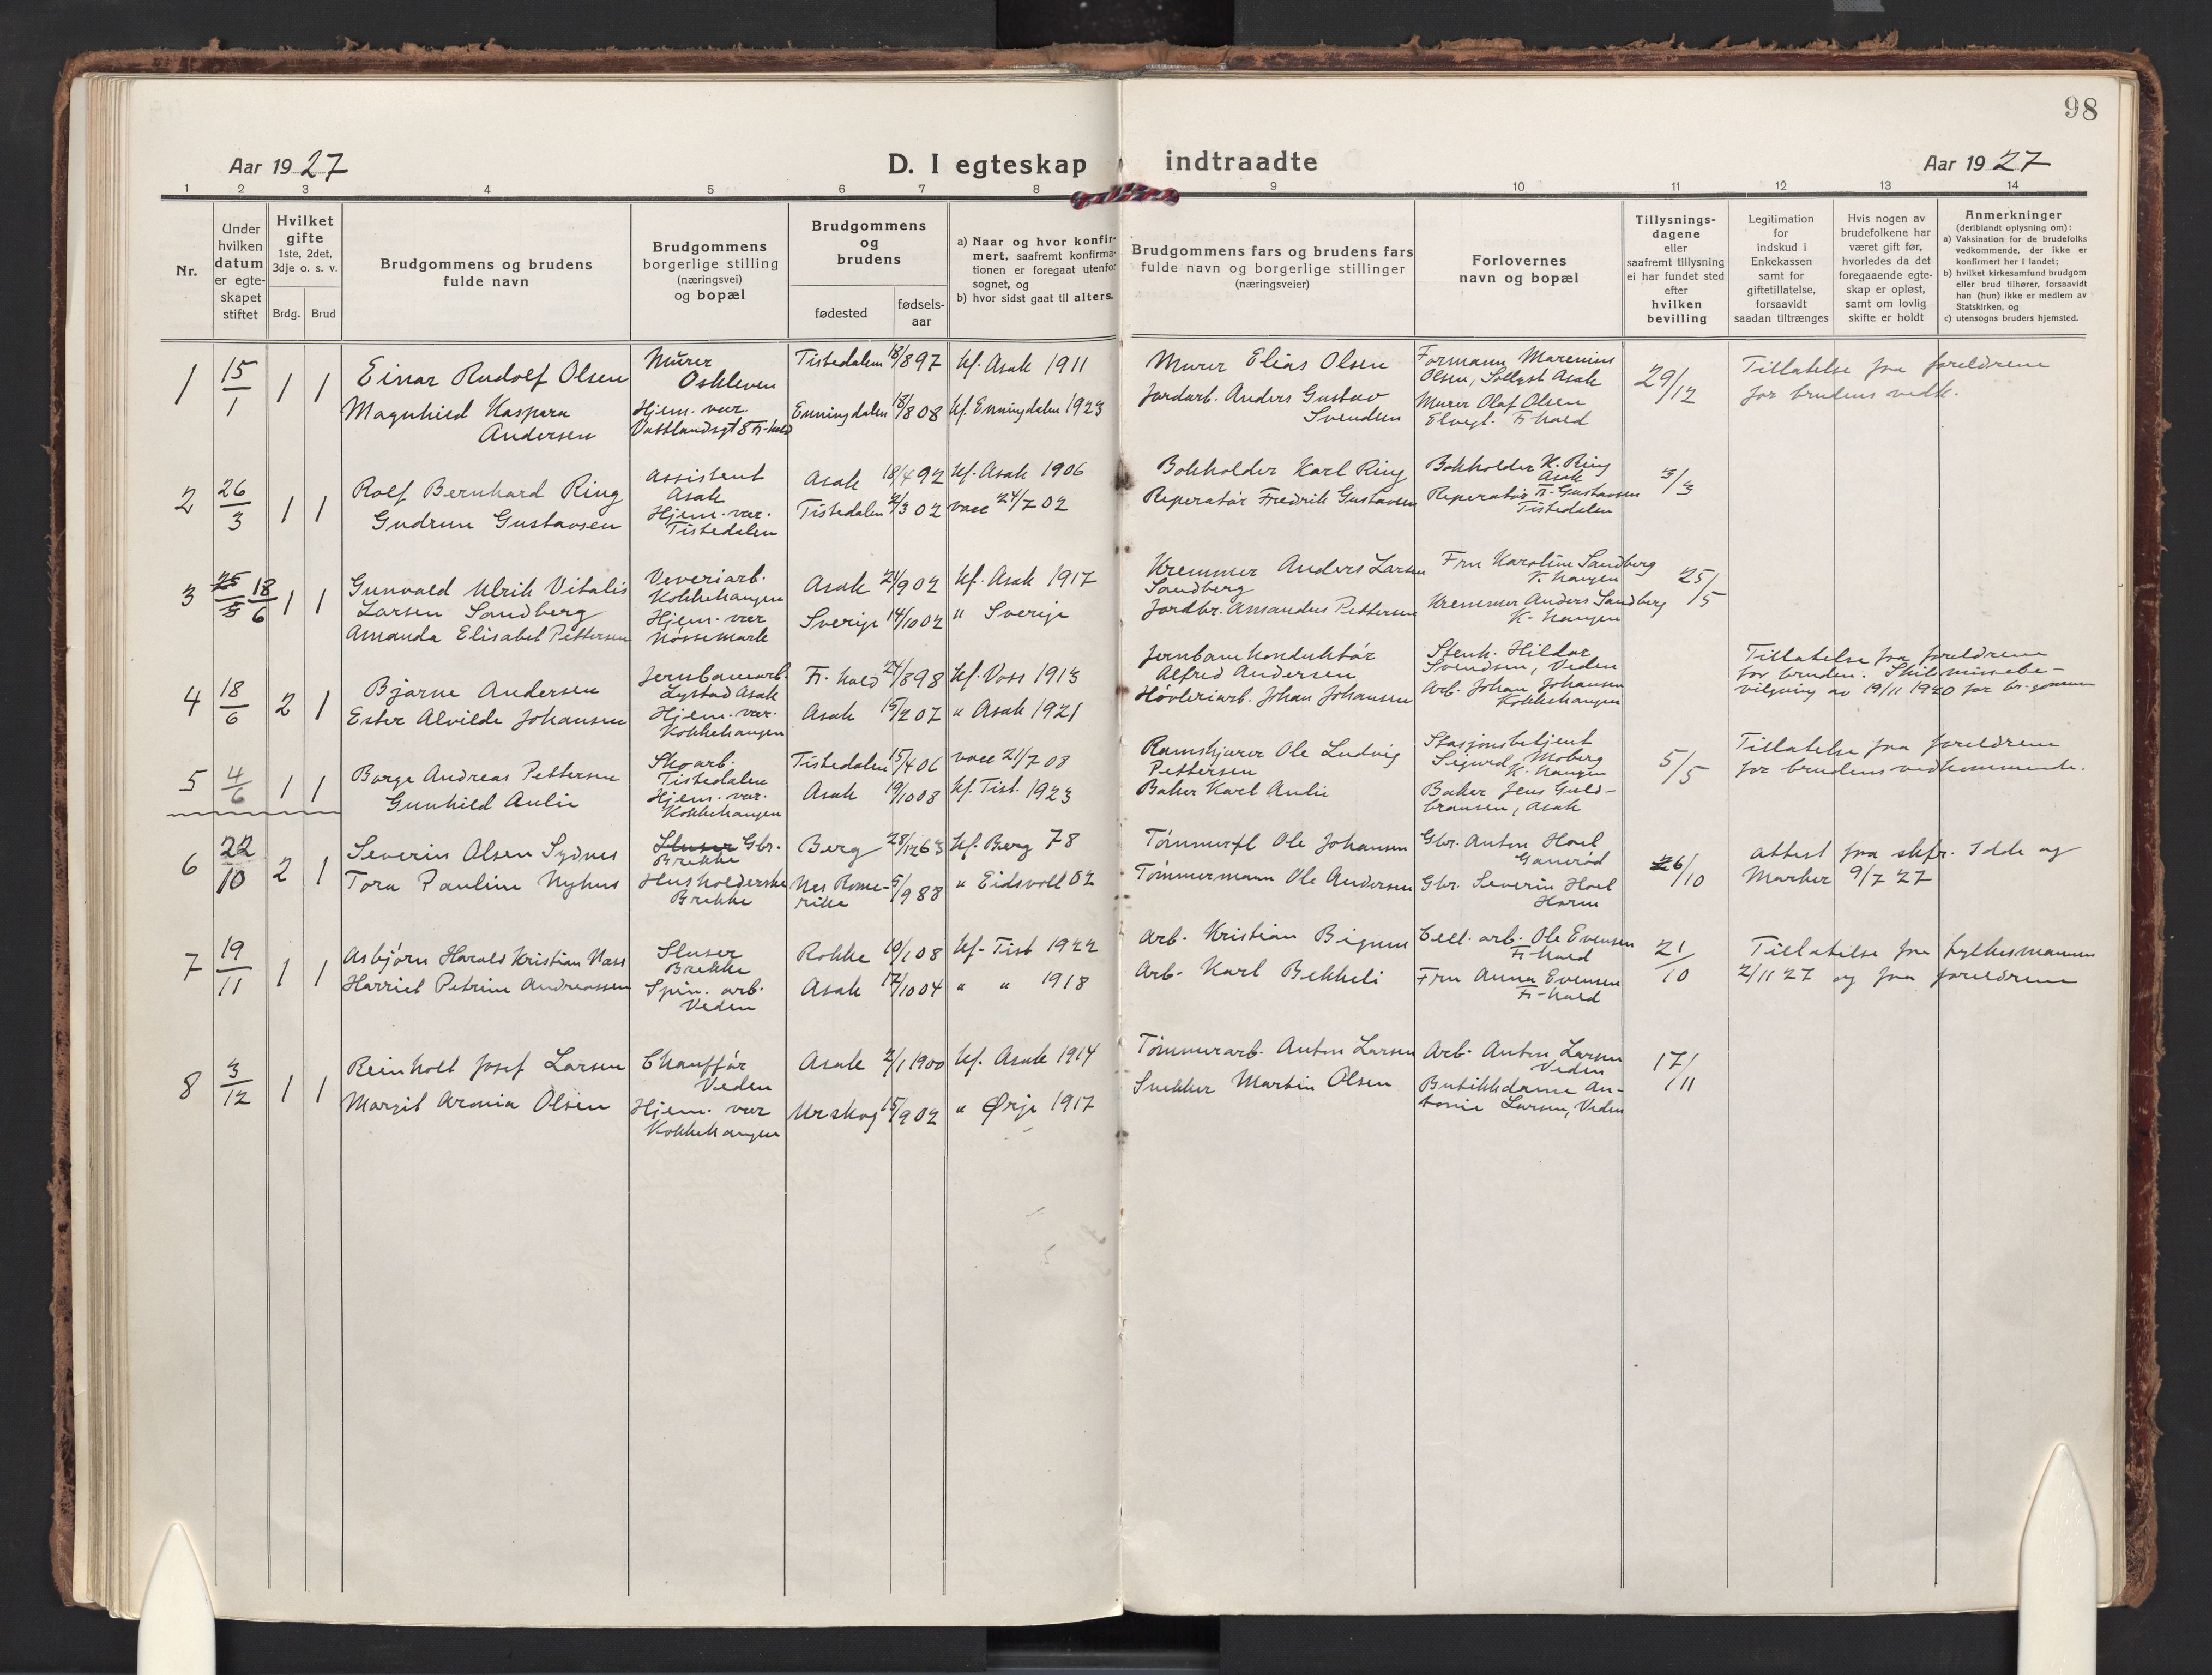 98
Aar 1927
D. I egteskap indtraadte
Aar 1927
1 2 3 4 5 6 7 8 9 10 11 12 13 14
Nr.
Under
hvilken
datum
er egte-
skapet
stiftet
Hvilket
gifte
1ste, 2det,
3dje o. s. v.
Brdg. Brud
Brudgommens og brudens
fulde navn
Brudgommens
borgerlige stilling
(næringsvei)
og bopæl
Brudgommens
og
brudens
fødested
fødsels-
aar
a) Naar og hvor konfir-
mert, saafremt konfirma-
tionen er foregaat utenfor
sognet, og
b) hvor sidst gaat til alters.
Brudgommens fars og brudens fars
fulde navn og borgerlige stillinger
(næringsveier)
Forlovernes
navn og bopæl
Tillysnings-
dagene
eller
saafremt tillysning
ei har fundet sted
efter
hvilken
bevilling
Legitimation
for
indskud i
Enkekassen
samt for
giftetillatelse,
forsaavidt
saadan tiltrænges
Hvis nogen av
brudefolkene har
været gift før,
hvorledes da det
foregaaende egte-
skap er opløst,
samt om lovlig
skifte er holdt
Anmerkninger
(deriblandt oplysning om):
a) Vaksination for de brudefolks
vedkommende, der ikke er
konfirmert her i landet;
b) hvilket kirkesamfund brudgom
eller brud tilhører, forsaavidt
han (hun) ikke er medlem av
Statskirken, og
c) utensogns bruders hjemsted.
1 15/1 1 1
Einar Rudolf Olsen
Magnhild Kaspara
Andersen
Murer
Oskleven
Hjem. vær.
Vattlandsgt 8 Fr.hald
Tistedalen 18/8 97 kf. Asak 1911
Enningdalen 18/8 08 kf. Enningdalen 1923
Murer Elias Olsen
Jordarb. Anders Gustav
Svendsen
Formann Marenius
Olsen, Sollyst Asak
Murer Olaf Olsen
Elvegt. Fr.hald
29/12
Tillatelse fra foreldrene
for brudens vedk.
2 26/3 1 1
Rolf Bernhard Ring
Gudrun Gustavsen
Assistent
Asak
Hjem. vær.
Tistedalen
Asak 18/4 92 kf. Asak 1906
Tistedalen 2/3 02 vacc 24/7 02
Bokholder Karl Ring
Reperatør Fredrik Gustavsen
Bokholder K. Ring
Asak
Reperatør Fr. Gustavsen
Tistedalen
3/3
3 25/5 18/6 1 1
Gunvald Ulrik Vitalis
Larsen Sandberg
Amanda Elisabet Pettersen
Veveriarb.
Kokkehaugen
Hjem. vær
Nøssemark
Asak 24/9 02 kf. Asak 1917
Sverige 14/10 02 " Sverige
Kremmer Anders Larsen
Sandberg
Jordbr. Amandus Pettersen
Fru Karoline Sandberg
K. haugen
Kremmer Anders Sandberg
K. haugen
25/5
4 18/6 2 1
Bjarne Andersen
Ester Alvilde Johansen
Jernbanearb.
Lystad Asak
Hjem. vær.
Kokkehaugen
Fr. hald 24/8 98 kf. Voss 1913
Asak 15/2 07 " Asak 1921
Jernbanekonduktør
Alfred Andersen
Høvleriarb. Johan Johansen
Stenh. Hildar
Svendsen, Veden
Arb. Johan Johansen
Kokkehaugen
Tillatelse fra foreldrene
for bruden. Skilsmissebe-
vilgning av 19/11 1920 for br.gommen
5 4/6 1 1
Borge Andreas Pettersen
Gunhild Aulie
Skoarb.
Tistedalen
Hjem. vær.
Kokkehaugen
Tistedalen 15/4 06 vacc 21/7 08
Asak 19/10 08 kf. Tist. 1923
Ramskjærer Ole Ludvig
Pettersen
Baker Karl Aulie
Stasjonsbetjent
Sigurd Moberg
K. haugen
Baker Jens Guld-
bransen, Asak
5/5
Tillatelse fra foreldrene
for brudens vedkommende.
6 22/10 2 1
Severin Olsen Sydnes
Tora Pauline Nyhus
Sluser Gbr.
Brekke
Husholderske
Brekke
Berg 28/12 63 kf. Berg 78
Nes Rome-
rike 5/9 88 " Eidsvoll 02
Tømmerfl Ole Johansen
Tømmermann Ole Andersen
Gbr. Anton Hoel
Ganerød
Gbr. Severin Hoel
Horne
26/10
Attest fra skfr. Idde og
Marker 9/7 27
7 19/11 1 1
Asbjørn Harald Kristian Næss
Harriet Petrine Andreassen
Sluser
Brekke
Spin. arb.
Veden
Rokke 10/1 08 kf. Tist 1922
Asak 17/10 04 " " 1918
Arb. Kristian Bignes
Arb. Karl Bekkeli
Cell. arb. Ole Evensen
Fr. hald
Fru Anna Evensen
Fr. hald
21/10
Tillatelse fra fylkesmannen
2/11 27 og fra foreldrene
8 3/12 1 1
Reinholt Josef Larsen
Margit Aronia Olsen
Chauffør
Veden
Hjem. vær
Kokkehaugen
Asak 2/1 1900 kf. Asak 1914
Urskog 15/9 02 " Ørje 1917
Tømmerarb. Anton Larsen
Snekker Martin Olsen
Arb. Anton Larsen
Veden
Butikkdame An-
tonie Larsen, Veden
17/11